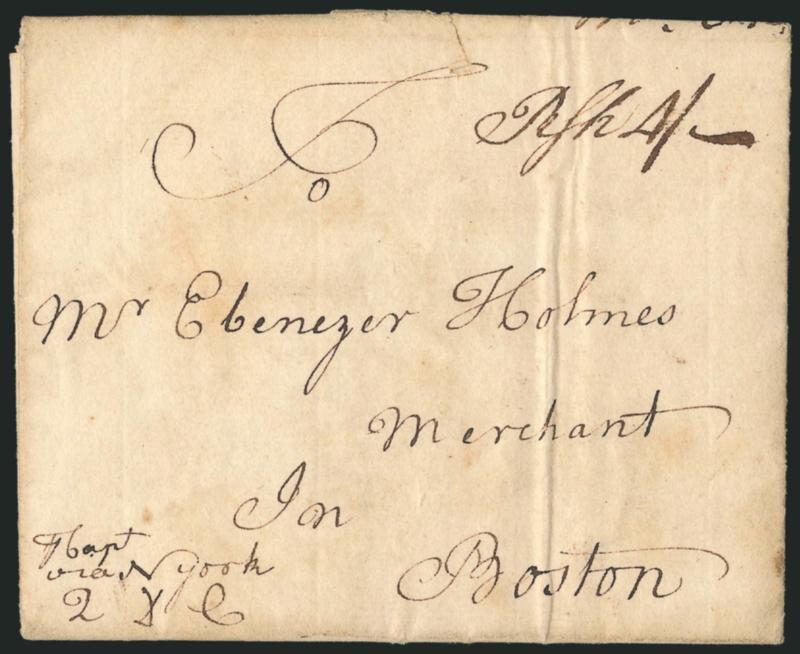 To
Mr Ebenezer Holmes
Merchant
In
Boston
via N York
2 D C